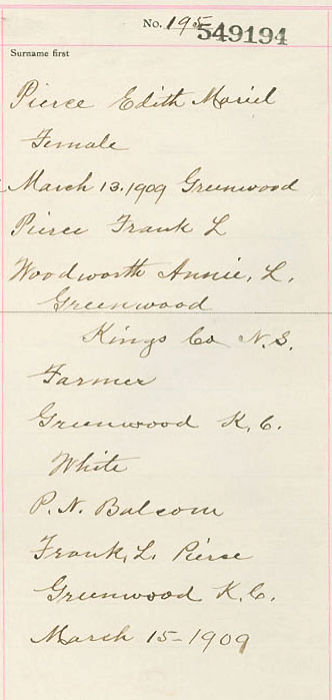 No. 195
549194
Surname first
Pierce Edith Moriel
Female
March 13. 1909 Greenwood
Pierce Frank L
Woodworth Annie. L.
Greenwood
Kings Co N.S.
Farmer
Greenwood K. C.
White
P. N. Balcom
Frank. L. Pierce
Greenwood K. C.
March 15-1909